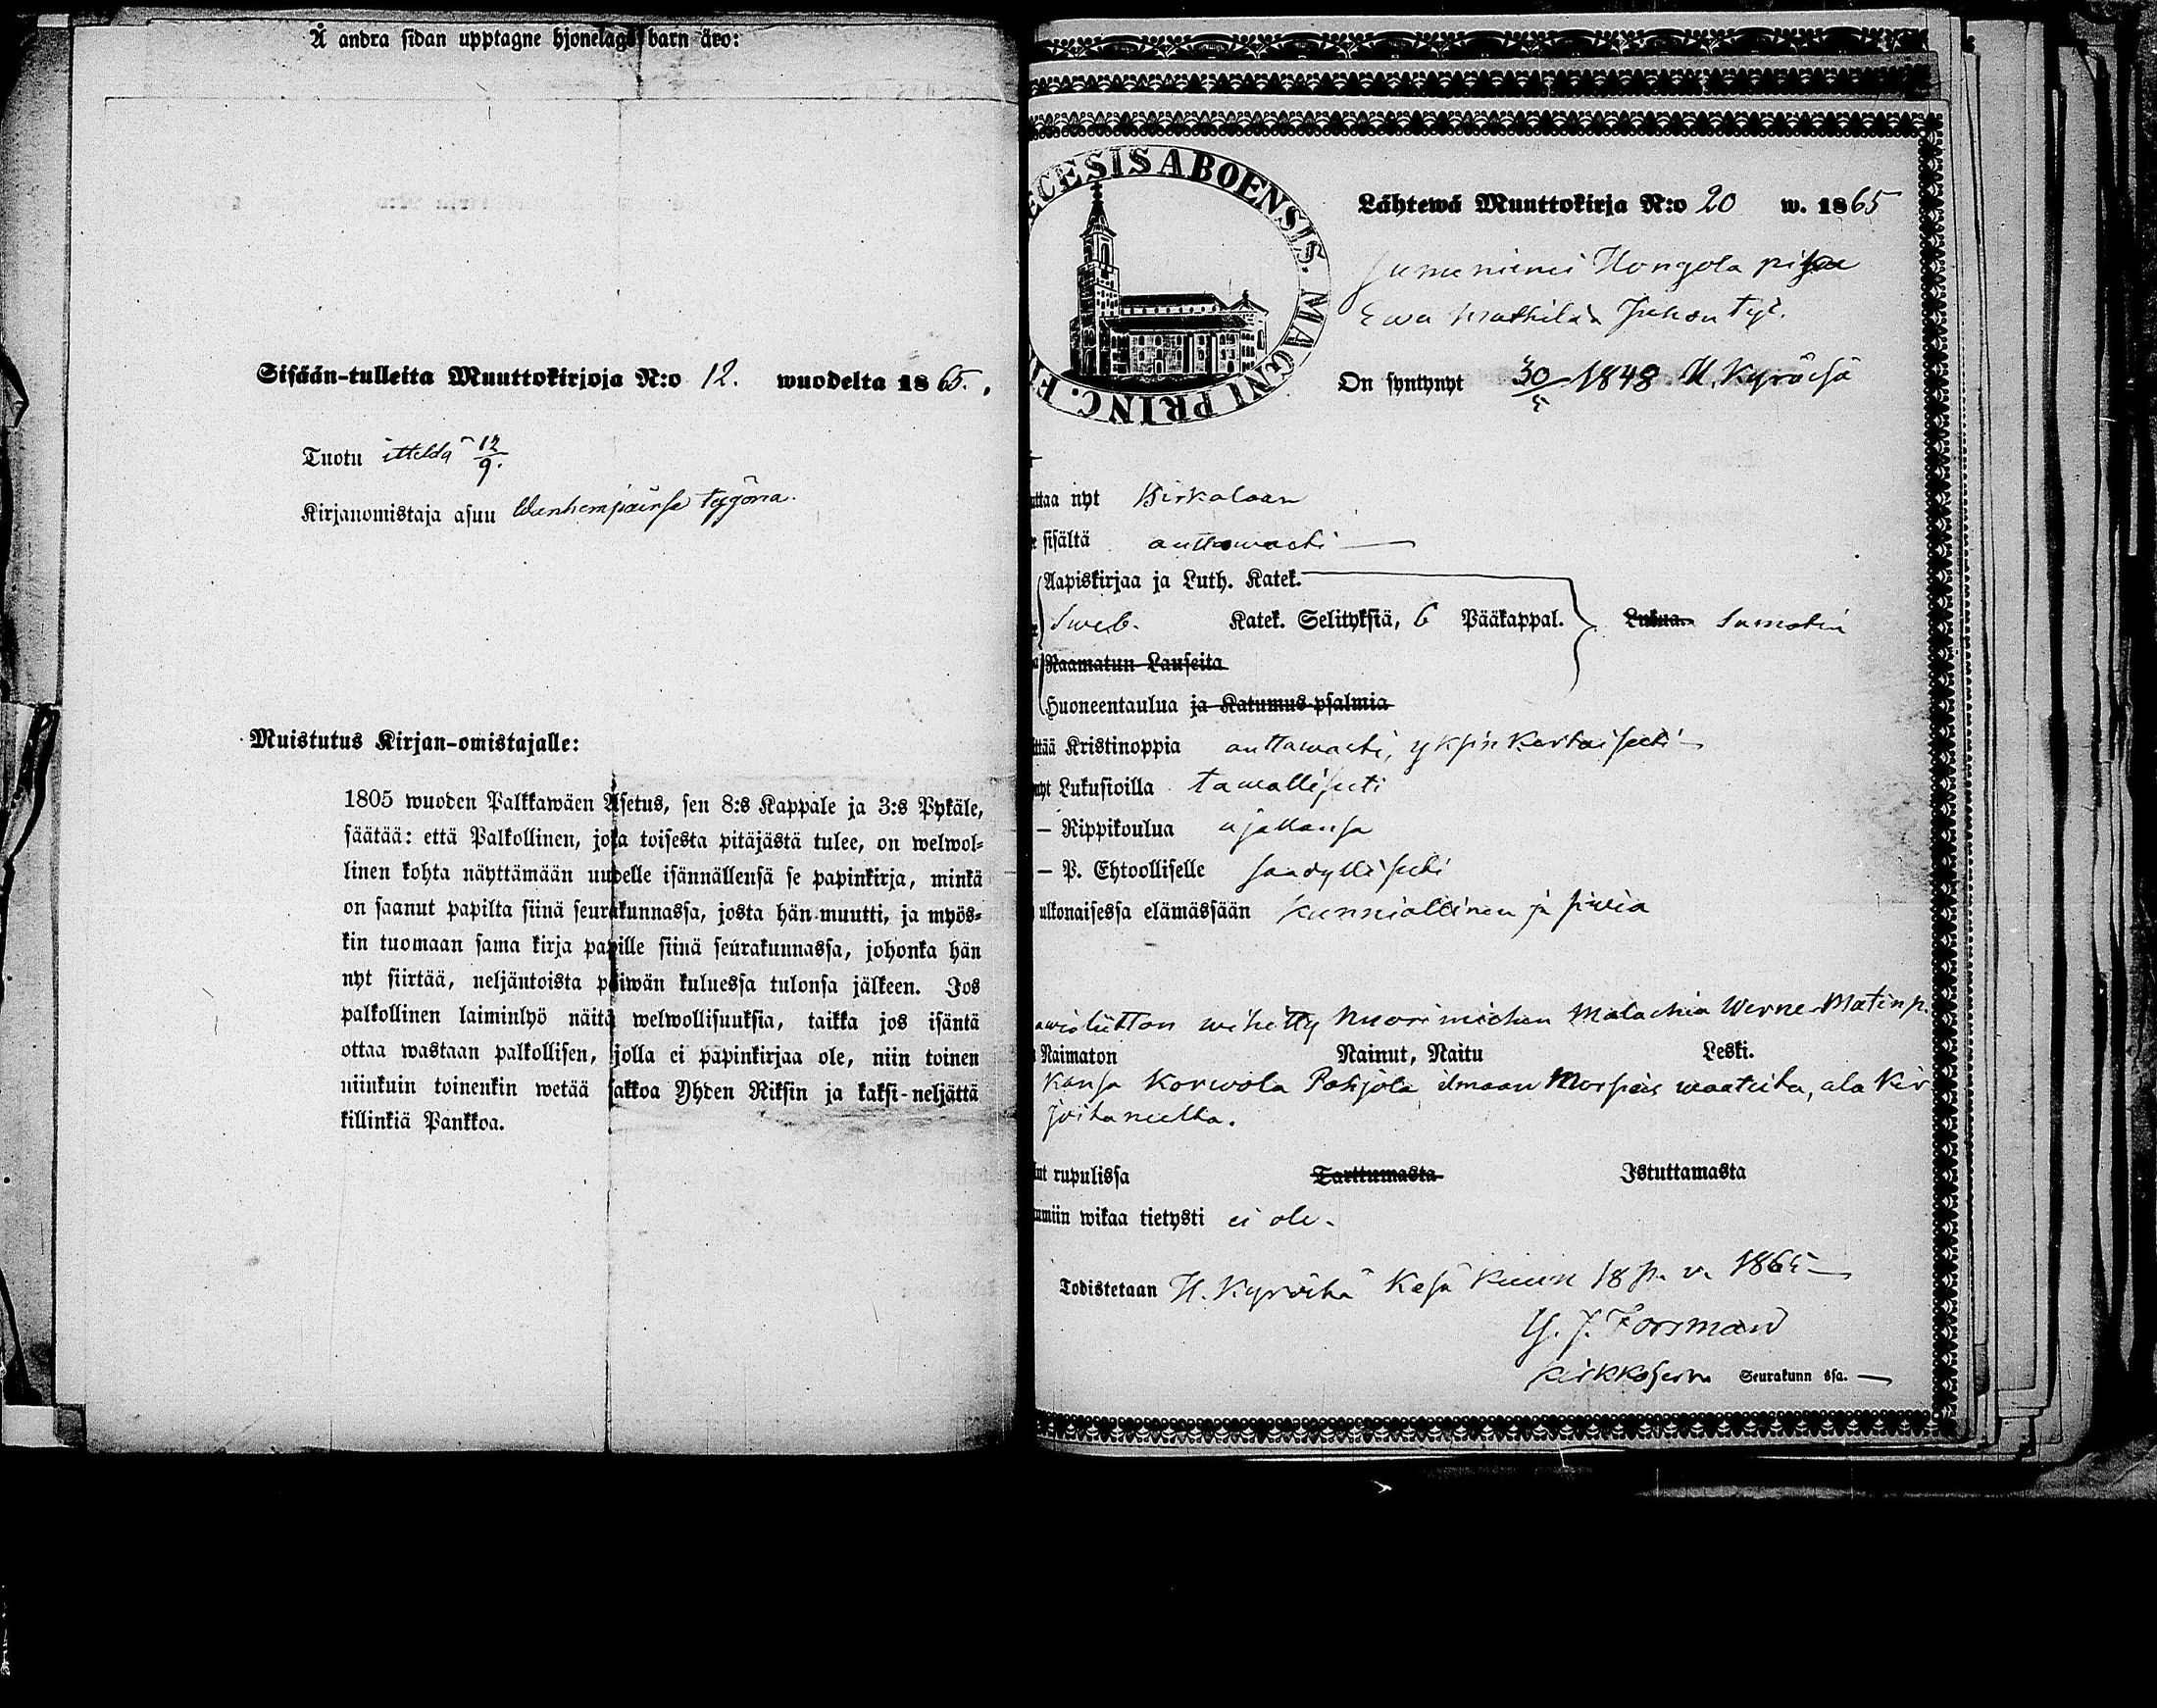 Å andra sidan upptagne hjonelags barn äro:
Sisään-tulleita Muuttokirjoja N:o 12. wuodelta 1865.
Tuotu itteldä 12/9.
Kirjanomistaja asuu Wanhempainsa tygönä.
Muistutus Kirjan-omistajalle:
1805 wuoden Palkkawäen Asetus, sen 8:s Kappale ja 3:s Pykäle,
säätää: että Palkollinen, joka toisesta pitäjästä tulee, on welwol-
linen kohta näyttämään uudelle isännällensä se papinkirja, minkä
on saanut papilta siinä seurakunnassa, josta hän muutti, ja myös-
kin tuomaan sama kirja papille siinä seurakunnassa, johonka hän
nyt siirtää, neljäntoista päiwän kuluessa tulonsa jälkeen. Jos
palkollinen laiminlyö näitä welwollisuuksia, taikka jos isäntä
ottaa wastaan palkollisen, jolla ei papinkirjaa ole, niin toinen
niinkuin toinenkin wetää sakkoa Yhden Riksin ja kaksi-neljättä
killinkiä Pankkoa.
ECESIS ABOENSIS. MAGNI PRINC. FI
Lähtewä Muuttokirja N:o 20 w. 1865
Jumeniemi Hongola piika
Ewa Mathilda Juhon tyt.
On syntynyt 30/5 1848 H. Kyrössä
ttaa nyt Birkalaan
sisältä auttawasti
Aapiskirjaa ja Luth. Katek.
Sweb. Katek. Selityksiä, 6 Pääkappal. Lukua.
Raamatun Lauseita
Huoneentaulua ja Katumus-psalmia
ttää Kristinoppia auttawasti, yksinkertaisesti
nyt Lukusioilla tawallisesti
– Rippikoulua ajallansa
– P. Ehtoolliselle säädyllisesti
ulkonaisessa elämässään kunniallinen ja siwiä
awioliitton wihitty Nuorimiehen Malachia Werne Matinp.
Naimaton Nainut, Naitu Leski.
kansa Korwola Pohjola ilman Morsian waateita, ala kir
joitaneelta.
nt rupulissa Tarttumasta Istuttamasta
mmiin wikaa tietysti ei ole.
Todistetaan H. Kyröstä Kesä Kuun 18 p. v. 1865
G. J. Forsman
Kirkkoherra Seurakunn ssa.